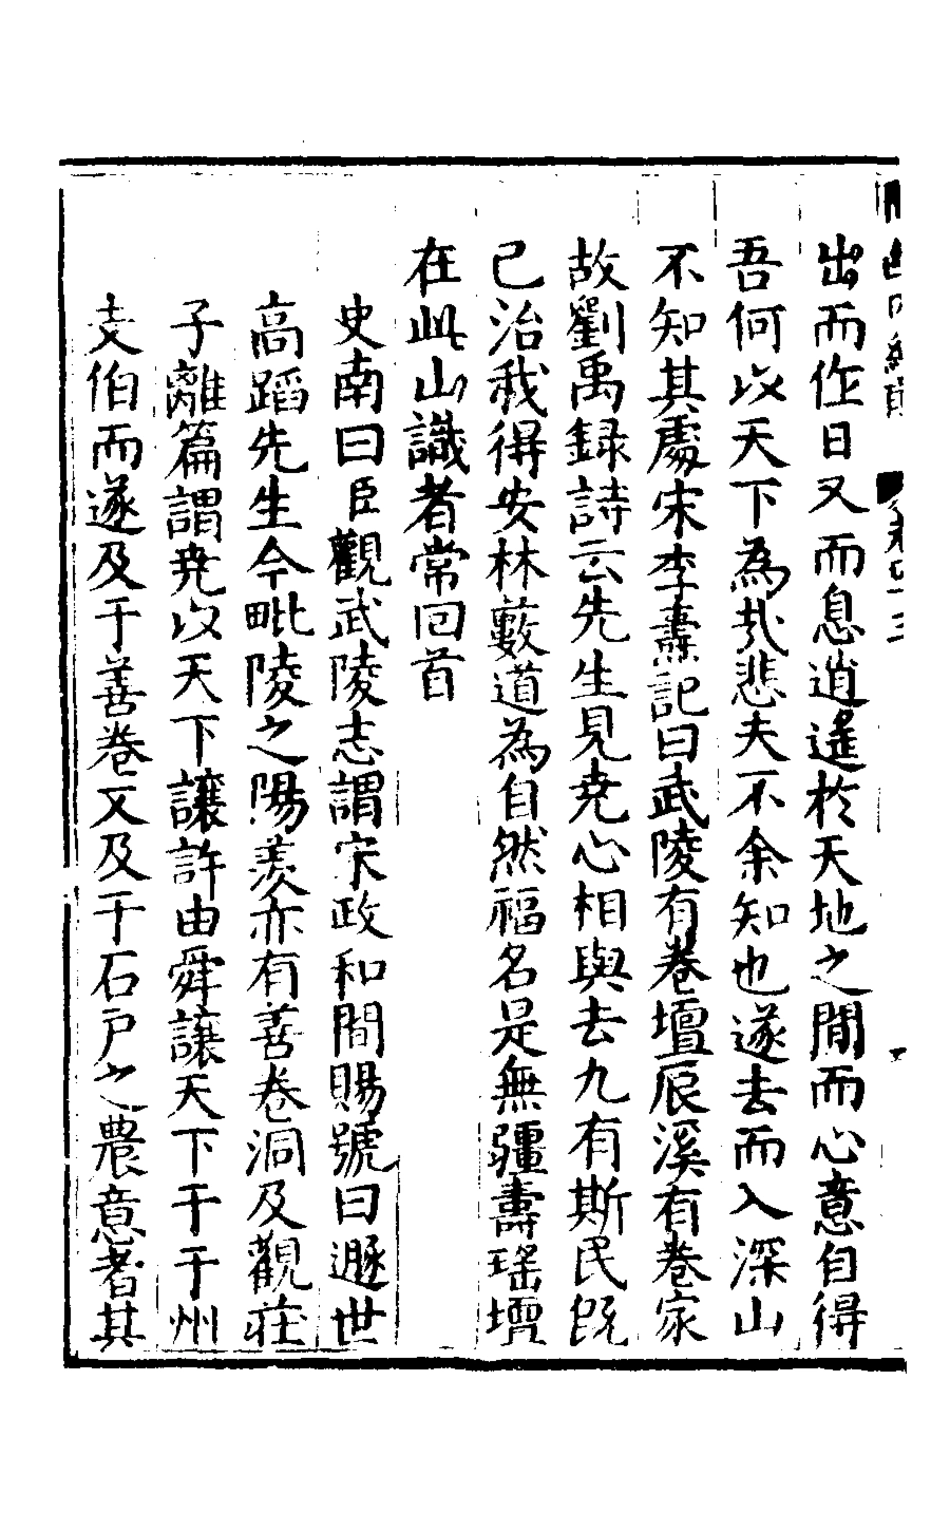 出而作日又而息逍遙於天地之間而心意自得
吾何以天下為哉悲夫不余知也遂去而入深山
不知其處宋李燾記曰武陵有卷壇辰溪有卷冢
故劉禹録詩云先生見尭心相與去九有斯民既
已治我得安林藪道為自然福名是無疆壽瑶壇
在此山識者常回首
史南曰臣觀武陵志謂宋政和間賜號曰遯世
高蹈先生今毗陵之陽羨亦有善卷洞及觀莊
子離篇謂尭以天下讓許由舜讓天下于子州
支伯而遂及于善卷又及于石戸之農意者其